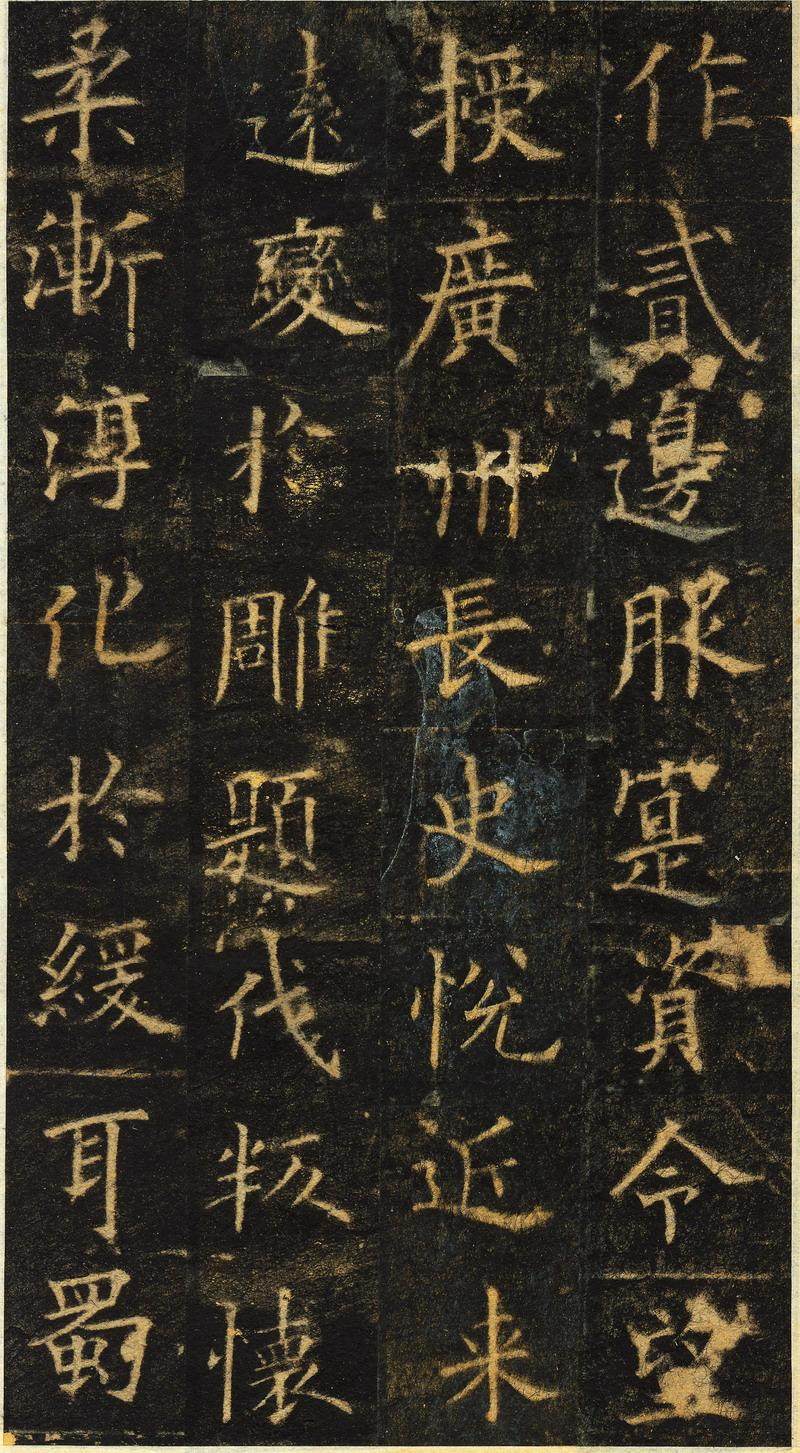 作貳邊服寔資令望
授廣州長史悦近来
遠變於雕題伐叛懷
柔漸淳化於緩耳蜀